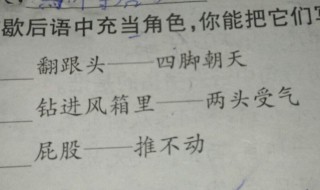 歇后语中充当角色,你能把它们写
___翻跟头——四脚朝天
___钻进风箱里——两头受气
___屁股——推不动